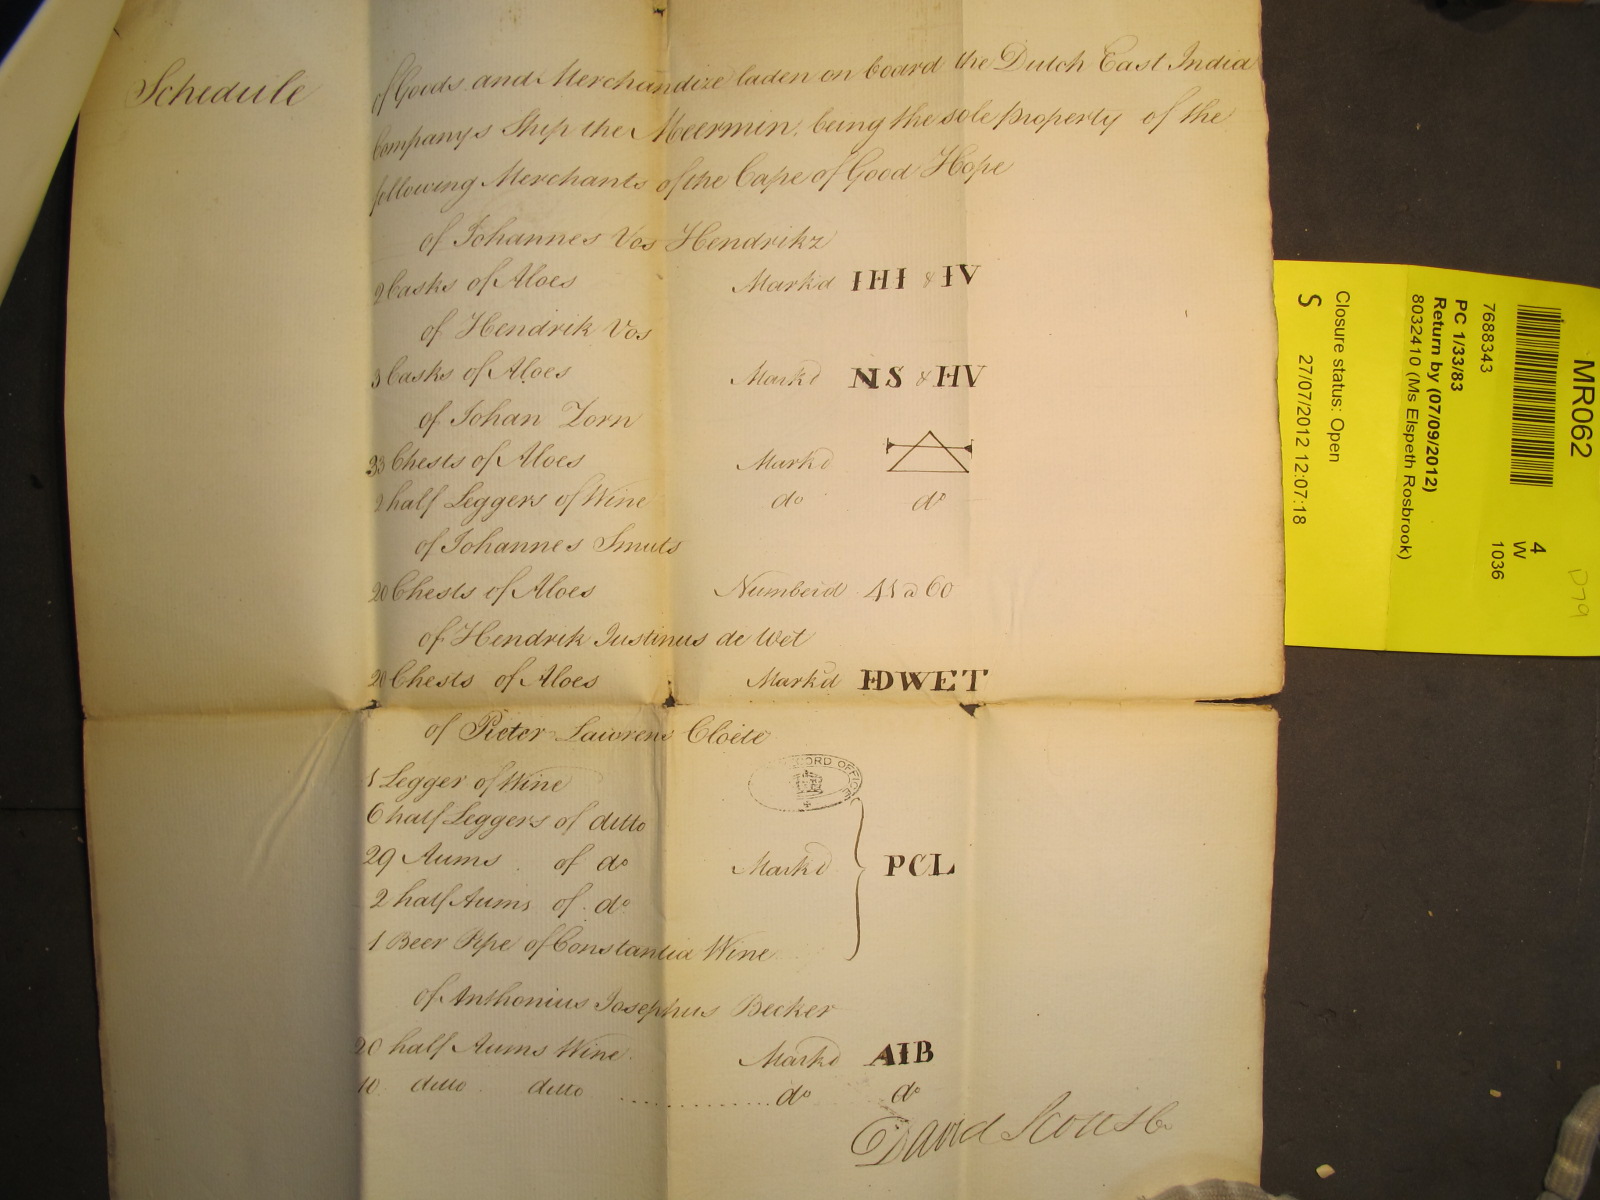 Schedule of Goods and Merchandize laden on board the Dutch East India
Companys Ship the Meermin, being the sole property of the
following Merchants of the Cape of Good Hope
of Johannes Vos Hendrikz
2 Casks of Aloes Mark'd IHI & IV
of Hendrik Vos
3 Casks of Aloes Mark'd NS & HV
of Johan Zorn
33 Chests of Aloes Mark'd
2 half Leggers of Wine do do
of Johannes Smuts
20 Chests of Aloes Number'd 41 a 60
of Hendrik Justinus de Wet
20 Chests of Aloes Mark'd IDWET
of Pieter Lawrens Cloete
1 Legger of Wine
6 half Leggers of ditto
29 Aums of do
2 half Aums of do
1 Beer Pipe of Constantia Wine
Mark'd PCL
of Anthonius Josephus Becker
20 half Aums Wine Mark'd AIB
10 ditto ditto do do
David Scott & Co
RECORD OFFICE
MR062
4
W
1036
D79
7688343
PC 1/33/83
Return by (07/09/2012)
8032410 (Ms Elspeth Rosbrook)
Closure status: Open
S 27/07/2012 12:07:18